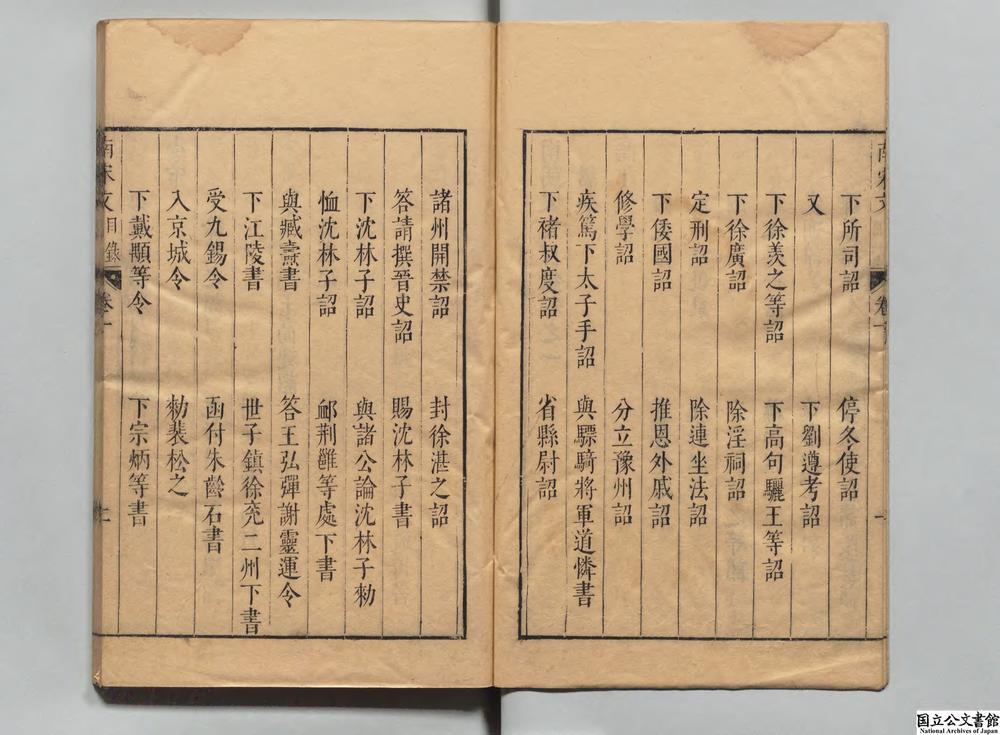 南宋文
卷一
下所司詔 停冬使詔
又 下劉遵考詔
下徐羨之等詔 下高句驪王等詔
下徐廣詔 除淫祠詔
定刑詔 除連坐法詔
下倭國詔 推恩外戚詔
修學詔 分立豫州詔
疾篤下太子手詔 與驃騎將軍道憐書
下褚叔度詔 省縣尉詔
諸州開禁詔 封徐湛之詔
答請撰晉史詔 賜沈林子書
下沈林子詔 與諸公論沈林子勑
恤沈林子詔 邺荆雝等處下書
與臧燾書 答王弘彈謝靈運令
下江陵書 世子鎮徐兖二州下書
受九錫令 函付朱齡石書
入京城令 勑裴松之
下戴顒等令 下宗炳等書
南宋文目錄 卷一 二
国立公文書館
National Archives of Japan